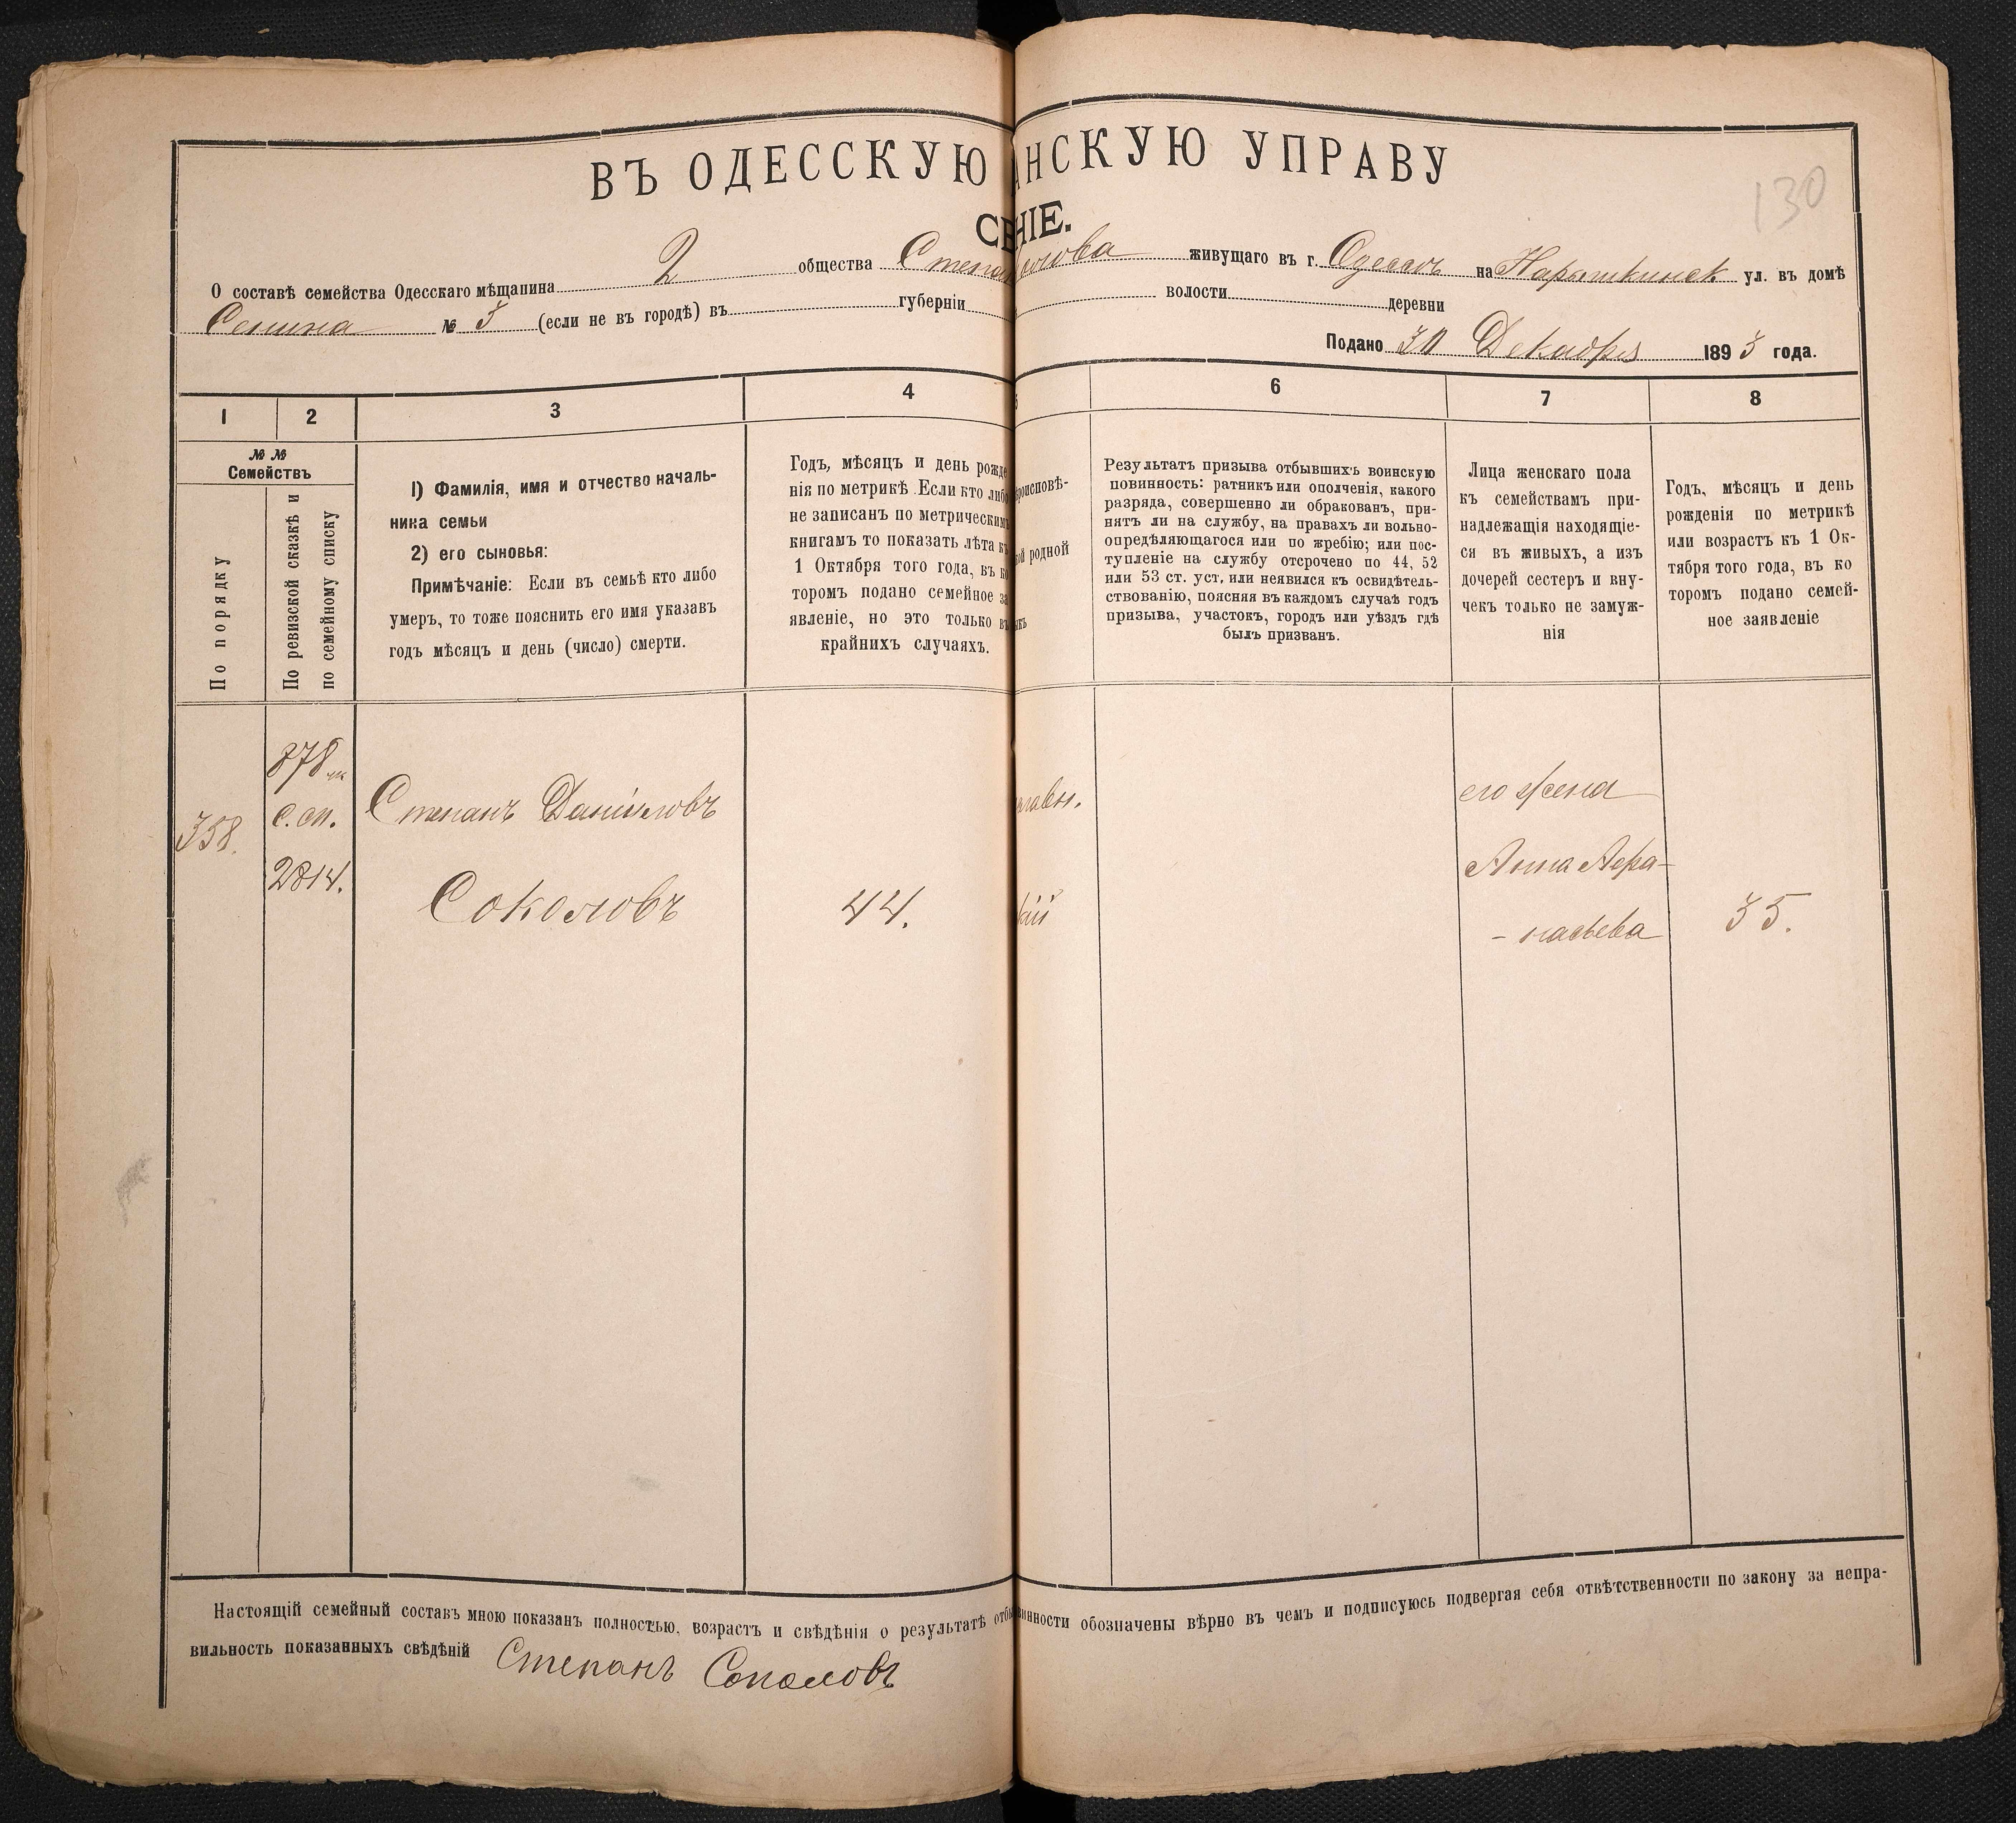 ВЪ ОДЕССКУЮ АНСКУЮ УПРАВУ
130
СЕНІЕ.
О составѣ семейства Одесскаго мѣщанина 2 общества Степа колова живущаго въ г. Одессѣ на Нарышкинск ул. въ домѣ
Сенина № 3 (если не въ городѣ) въ губерніи волости деревни
Подано 30 Декабря 1893 года.
1 2 3 4 5 6 7 8
№ №
Семействъ
По порядку
По ревизской сказкѣ и
по семейному списку
1) Фамилія, имя и отчество началь-
ника семьи
2) его сыновья:
Примѣчаніе: Если въ семьѣ кто либо
умеръ, то тоже пояснить его имя указавъ
годъ мѣсяцъ и день (число) смерти.
Годъ, мѣсяцъ и день рожде
нія по метрикѣ. Если кто либо
не записанъ по метрическимъ
книгамъ то показать лѣта къ
1 Октября того года, въ ко
торомъ подано семейное за
явленіе, но это только въ
крайнихъ случаяхъ.
роисповѣ-
ой родной
ыкъ
Результатъ призыва отбывшихъ воинскую
повинность: ратникъ или ополченія, какого
разряда, совершенно ли обракованъ, при-
нятъ ли на службу, на правахъ ли вольно-
опредѣляющагося или по жребію; или пос-
тупленіе на службу отсрочено по 44, 52
или 53 ст. уст. или неявился къ освидѣтель-
ствованію, поясняя въ каждомъ случаѣ годъ
призыва, участокъ, городъ или уѣздъ гдѣ
былъ призванъ.
Лица женскаго пола
къ семействамъ при-
надлежащія находящіе-
ся въ живыхъ, а изъ
дочерей сестеръ и вну-
чекъ только не замуж-
нія
Годъ, мѣсяцъ и день
рожденія по метрикѣ
или возрастъ къ 1 Ок-
тября того года, въ ко
торомъ подано семей-
ное заявленіе
358.
878
с.сп.
2814.
Степанъ Даніиловъ
Соколовъ
44.
славн.
кій
его жена
Анна Афа-
- насьева
35.
Настоящій семейный составъ мною показанъ полностью, возрастъ и свѣдѣнія о результатѣ отбы винности обозначены вѣрно въ чемъ и подписуюсь подвергая себя отвѣтственности по закону за непра-
вильность показанныхъ свѣдѣній Степанъ Соколовъ